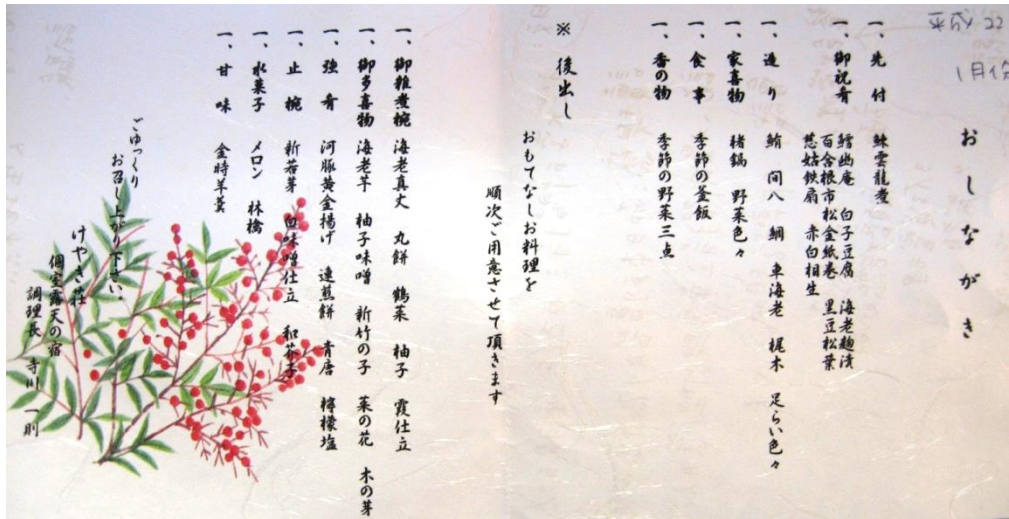 平成22
1月
おしながき
一、先付 鰊雲龍煮
一、御祝肴 鱈幽庵 白子豆腐 海老麹漬
百合根市松金紙巻 黒豆松葉
慈姑鉄扇 赤白相生
一、造り 鮪 間八 鯛 車海老 梶木 足らい色々
一、家喜物 猪鍋 野菜色々
一、食事 季節の釜飯
一、香の物 季節の野菜三点
※ 後出し
おもてなしお料理を
順次ご用意させて頂きます
一、御雑煮椀 海老真丈 丸餅 鶴菜 柚子 霞仕立
一、御多喜物 海老芋 柚子味噌 新竹の子 菜の花 木の芽
一、強肴 河豚黄金揚げ 連煎餅 青唐 檸檬塩
一、止椀 新若芽 白味噌仕立 和芥子
一、水菓子 メロン 林檎
一、甘味 金時羊羹
ごゆっくり
お召し上がり下さい。
けやき荘
個室露天の宿
調理長 寺川 一則